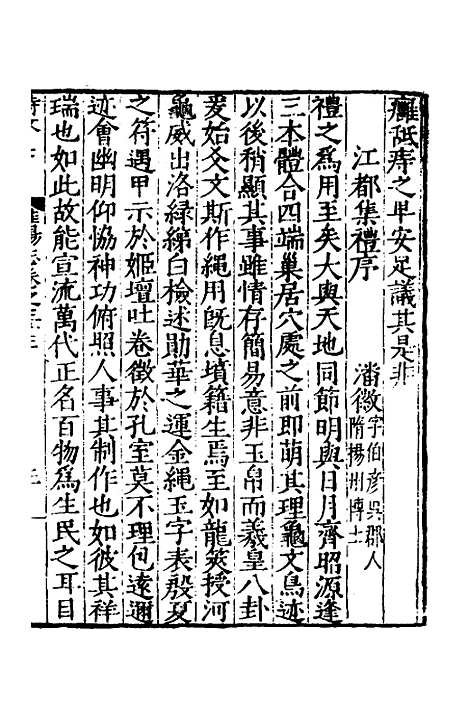 癰砥痔之卑安足議其是非
江都集禮序
潘徽字伯彦吳郡人
隋揚州博士
禮之爲用至矣大與天地同節明與日月齊昭源逢
三本體合四端巢居穴處之前即萌其理龜文鳥迹
以後稍顯其事雖情存簡易意非玉帛而羲皇八卦
爰始爻文斯作繩用旣息墳籍生焉至如龍筴授河
龜威出洛綠綈白檢述勛華之運金繩玉字表殷夏
之符遇甲示於姬壇吐卷徵於孔室莫不理包遠邇
迹會幽明仰協神功俯照人事其制作也如彼其祥
瑞也如此故能宣流萬代正名百物爲生民之耳目